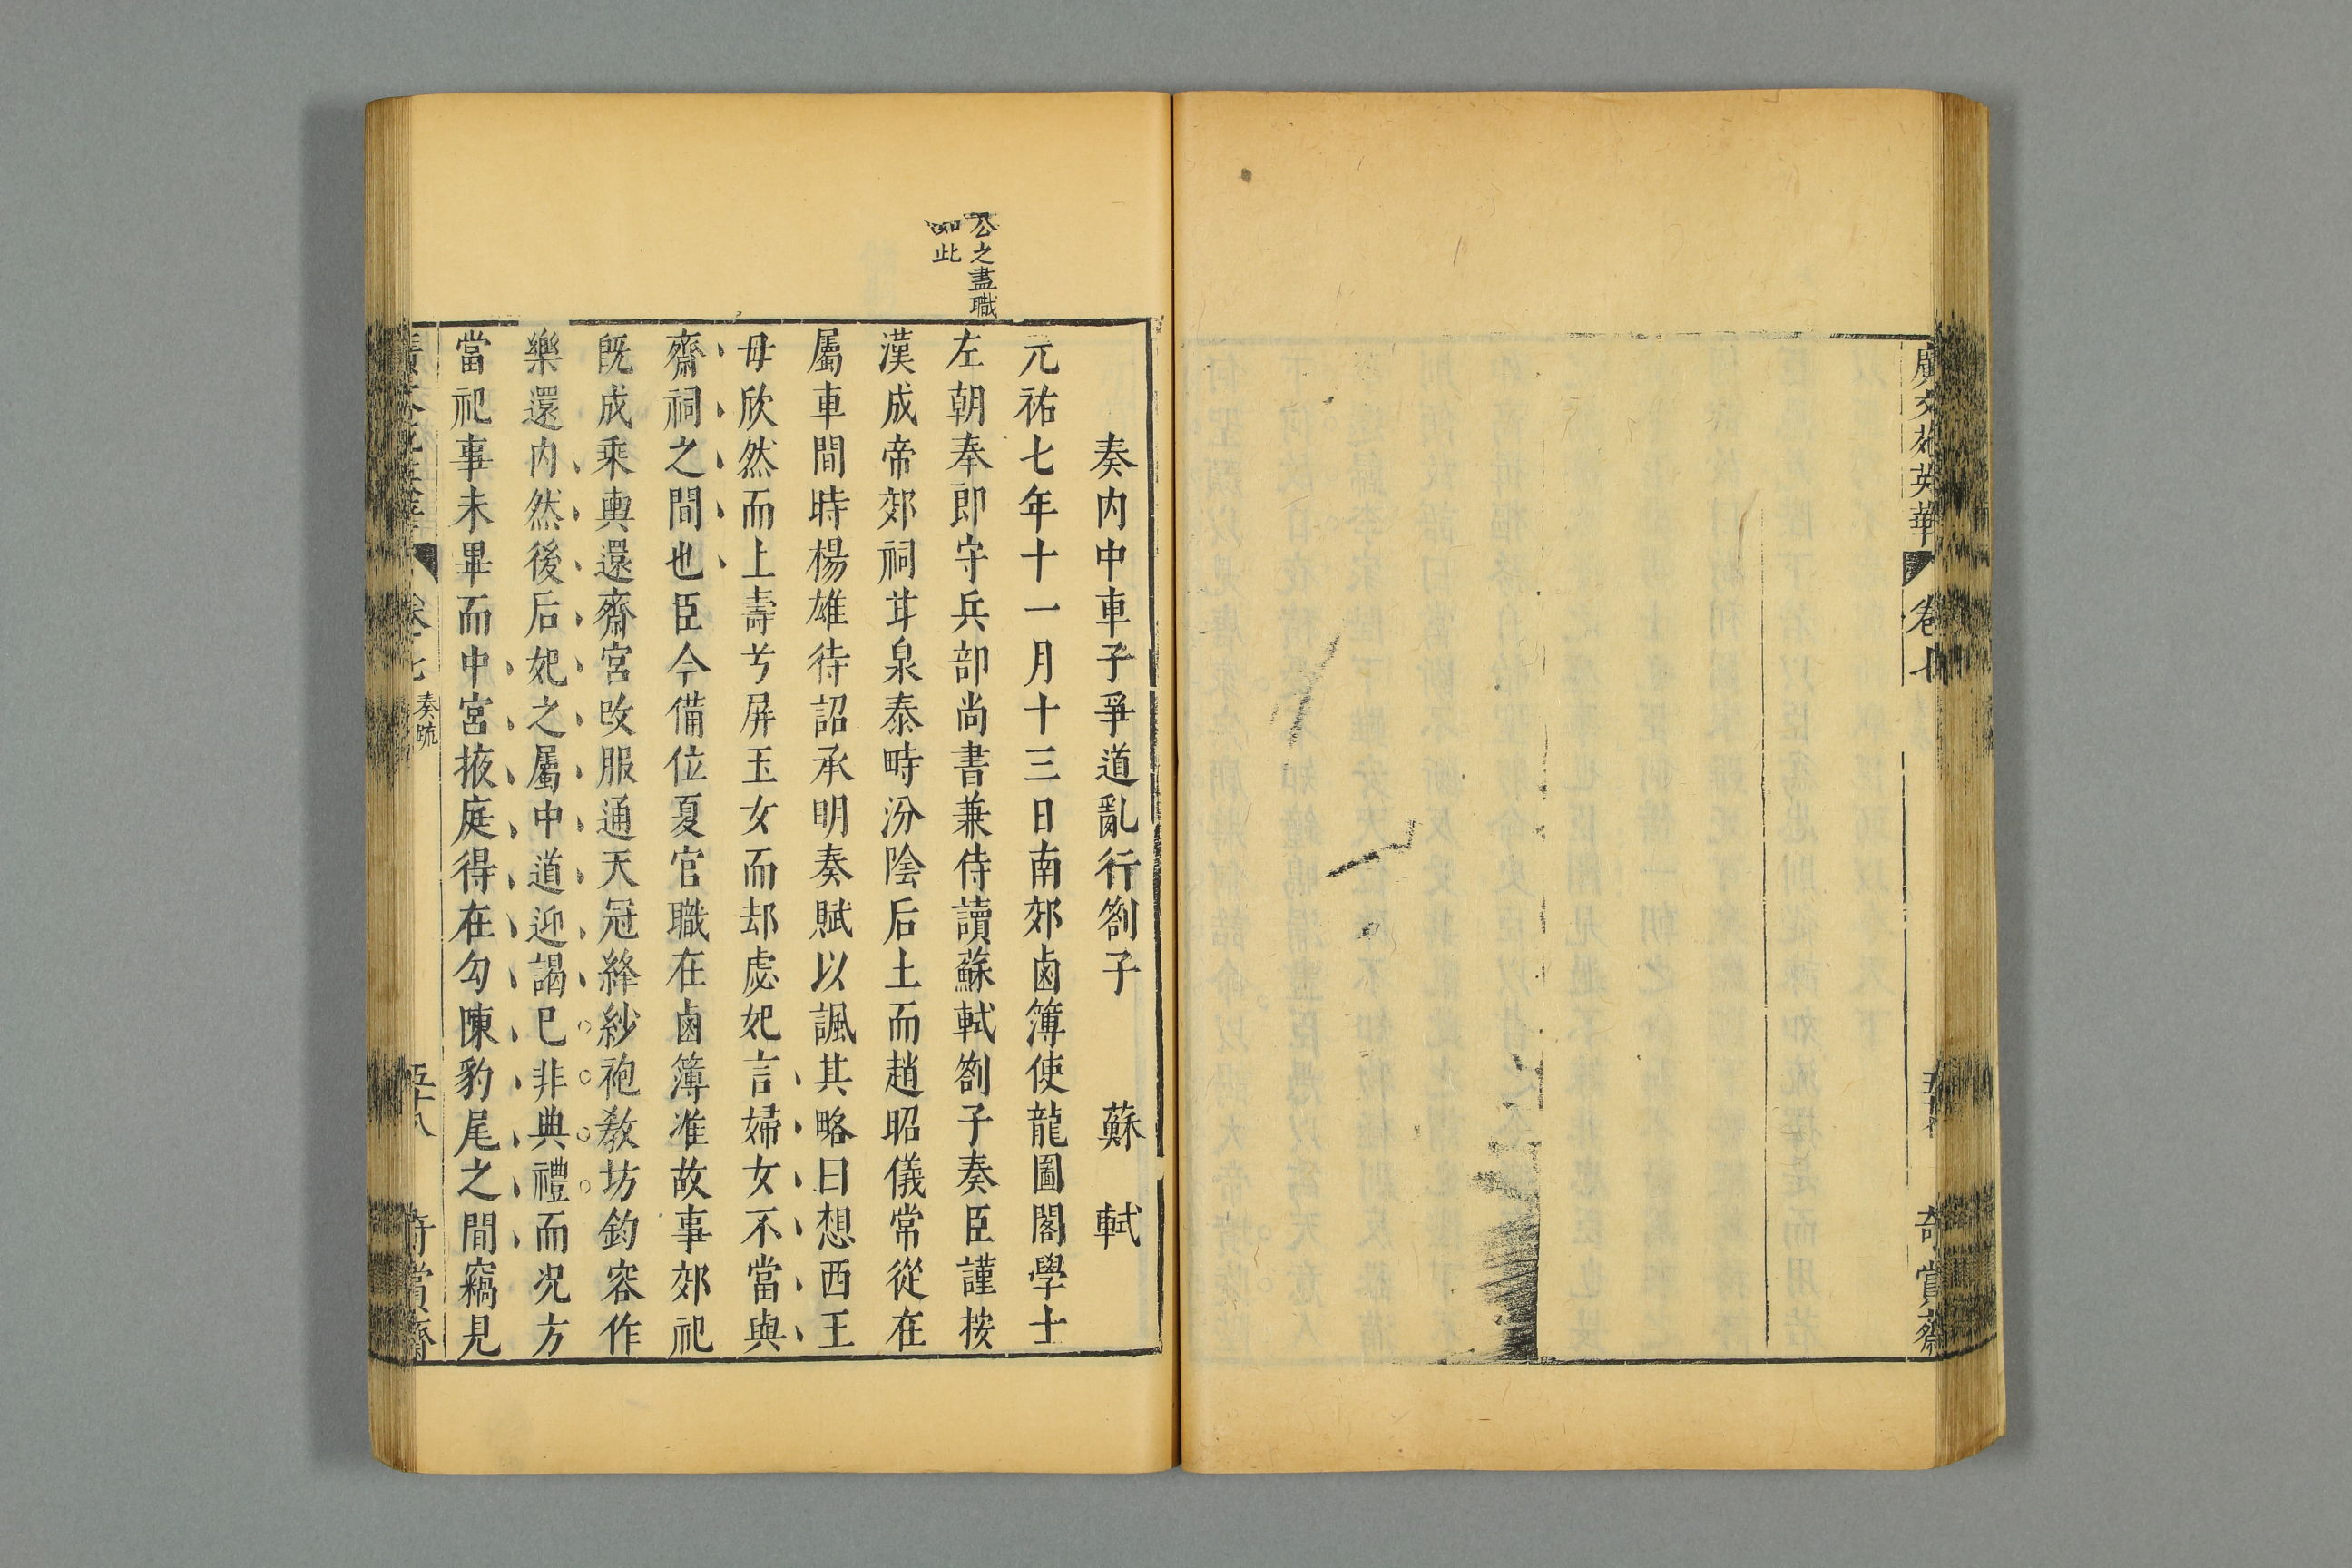 廣文苑英華
卷七
奇賞齋
公之盡職
如此
奏内中車子爭道亂行劄子 蘇軾
元祐七年十一月十三日南郊鹵簿使龍圖閣學士
左朝奉郎守兵部尚書兼侍讀蘇軾劄子奏臣謹按
漢成帝郊祠甘泉泰畤汾陰后土而趙昭儀常從在
屬車間時楊雄待詔承明奏賦以諷其略曰想西王
母欣然而上壽兮屏玉女而却虙妃言婦女不當與
齋祠之間也臣今備位夏官職在鹵簿准故事郊祀
既成乘輿還齋宮改服通天冠絳紗袍教坊鈞容作
樂還内然後后妃之屬中道迎謁已非典禮而况方
當祀事未畢而中宮掖庭得在勾陳豹尾之間竊見
卷七
奏疏
五十八
奇賞齋